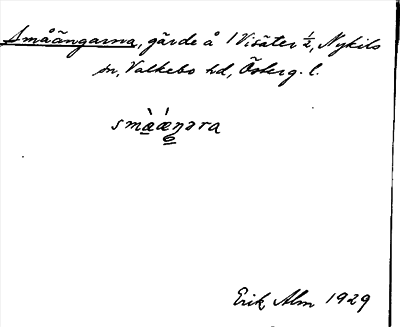 Småängarna, gärde å 1 Visäter ½, Nykils
sn, Valkebo hd, Österg. l.
Erik Alm 1929